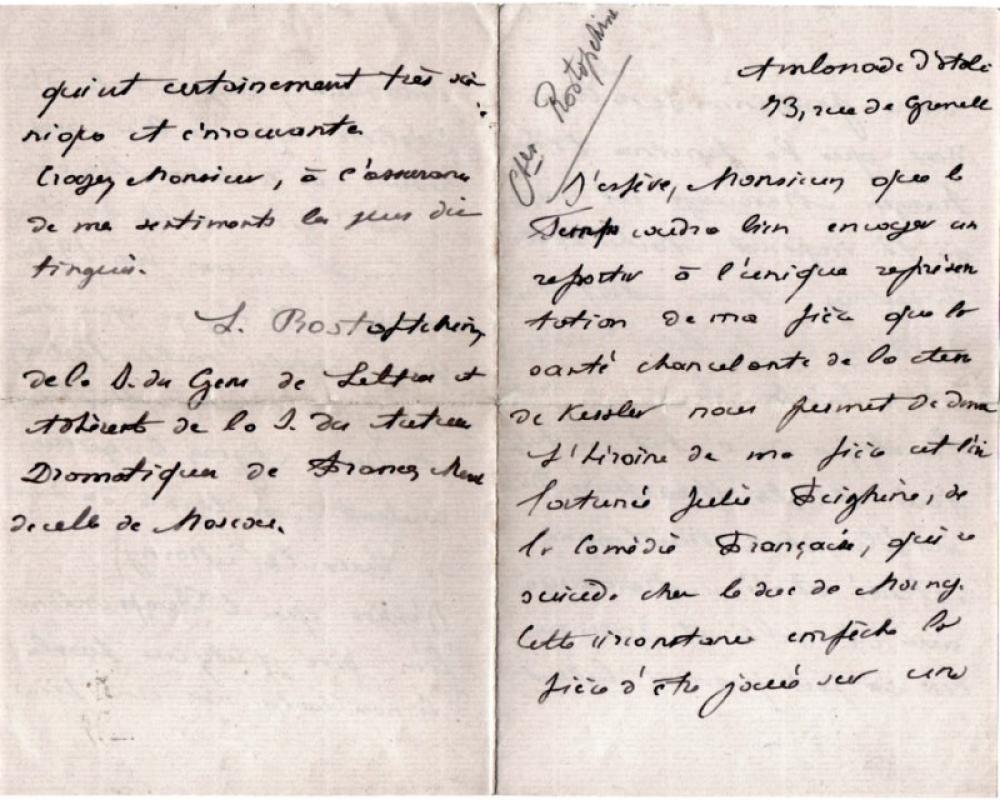 Ctesse Rostopchine
Ambassade d'Italie
73, rue de Grenelle
J'espère, Monsieur, que le
Temps voudra bien envoyer un
reporter à l'unique représen
tation de ma pièce que la
santé chancelante de la ctesse
de Kessler nous permet de donner
L'héroïne de ma pièce est l'in
fortunée Julie Feighine, de
la Comédie Française, qui se
suicida chez le duc de Morny.
Cette circonstance empêche la
pièce d'être jouée sur une
qui est certainement très scé
nique et émouvante.
Croyez, Monsieur, à l'assurance
de mes sentiments les plus dis
tingués.
L. Rostoptchine,
de la S. des Gens de Lettres et
adhérente de la S. des Auteurs
Dramatiques de France, Membre
de celle de Moscou.